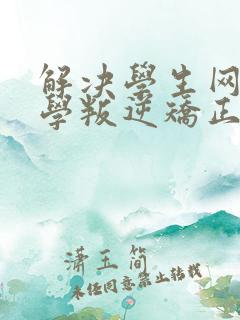 解决學生网
學叛逆矯正
潇玉简
未经同意禁止转载